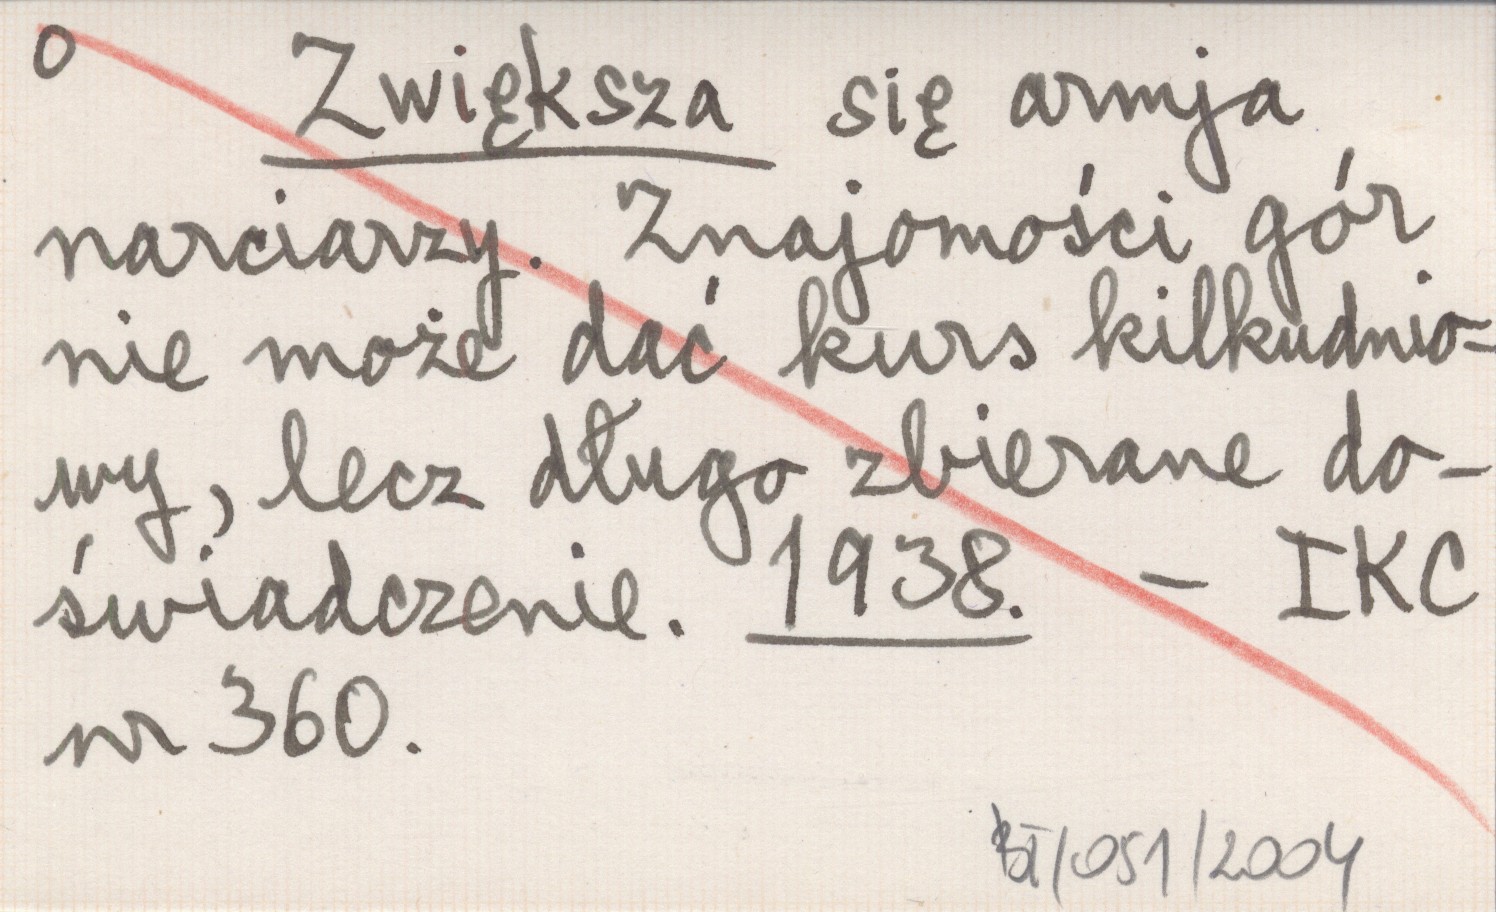 o Zwiększa się armja
narciarzy. Znajomości gór
nie może dać kurs kilkudnio=
wy, lecz długo zbierane do-
świadczenie. 1938. - IKC
nr 360.
/051/2004